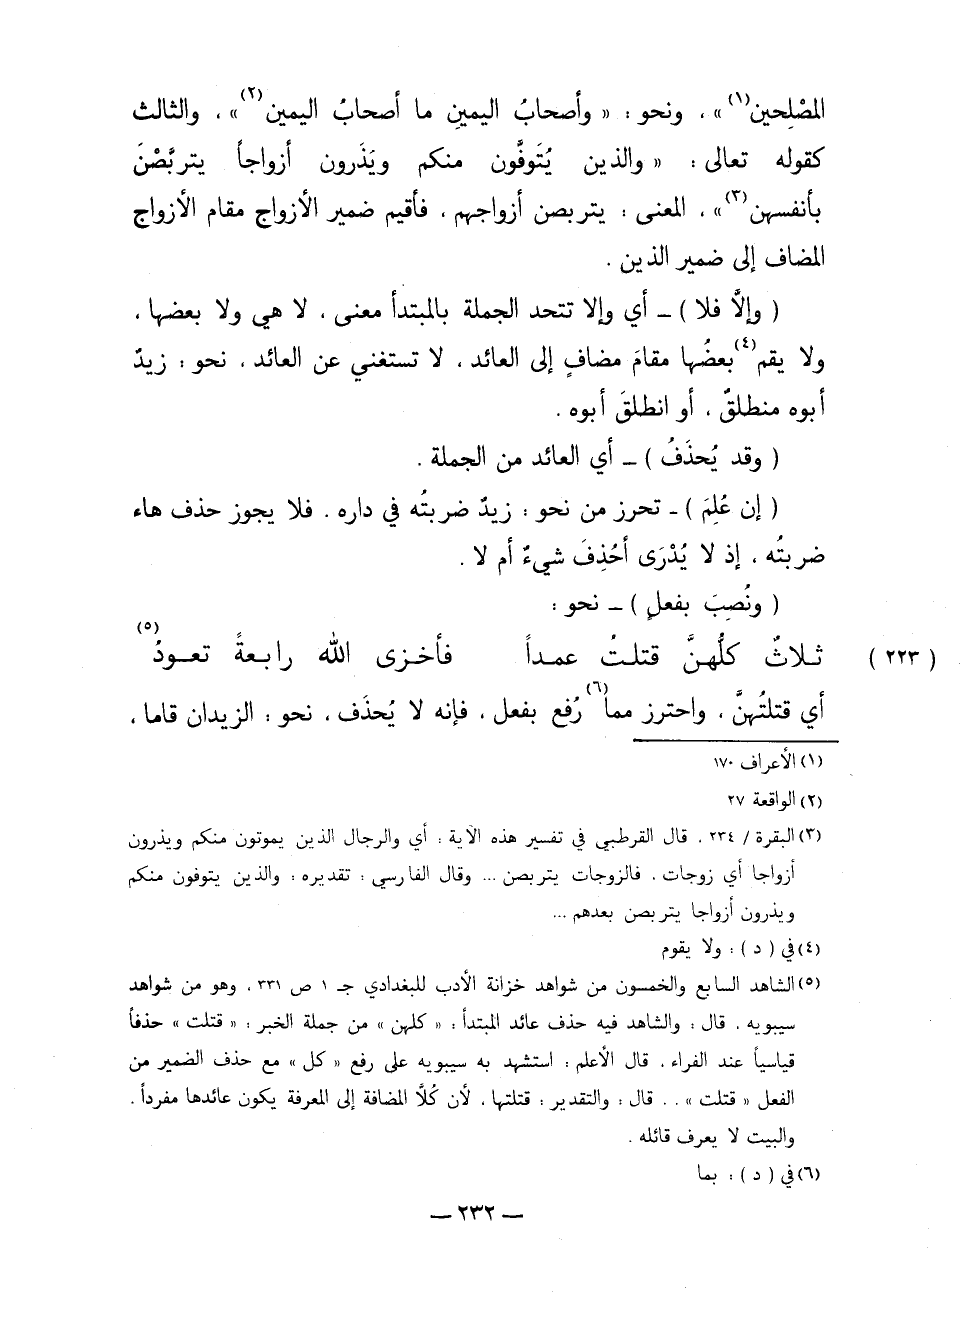 المصْلِحين(١)» ، ونحو : « وأصحابُ اليمينِ ما أصحابُ اليمين(٢)» ، والثالث
كقوله تعالى : « والذين يُتَوفَّون منكم ويَذَرون أزواجاً يتربَّصْنَ
بأنفسهن(٣)» ، المعنى : يتربصن أزواجهم ، فأقيم ضمير الأزواج مقام الأزواج
المضاف إلى ضمير الذين .
( وإلَّا فلا ) ــ أي وإلا تتحد الجملة بالمبتدأ معنى ، لا هي ولا بعضها ،
ولا يقم(٤) بعضُها مقامَ مضافٍ إلى العائد ، لا تستغني عن العائد ، نحو : زيدٌ
أبوه منطلقٌ ، أو انطلقَ أبوه .
( وقد يُحذَفُ ) ــ أي العائد من الجملة .
( إن عُلِمَ ) ــ تحرز من نحو : زيدٌ ضربتُه في داره . فلا يجوز حذف هاء
ضربتُه ، إذ لا يُدْرَى أحُذِفَ شيءٌ أم لا .
( ونُصِبَ بفعلٍ ) ــ نحو :
( ٢٢٣ ) ثـلاثٌ كلُّهنَّ قتلتُ عمـداً فأخـزى الله رابـعةً تعـودُ(٥)
أي قتلتُهنَّ ، واحترز مما(٦) رُفع بفعل ، فإنه لا يُحذَف ، نحو : الزيدان قاما ،
(١) الأعراف ١٧٠
(٢) الواقعة ٢٧
(٣) البقرة / ٢٣٤ . قال القرطبي في تفسير هذه الآية : أي والرجال الذين يموتون منكم ويذرون
أزواجا أي زوجات . فالزوجات يتربصن ... وقال الفارسي : تقديره : والذين يتوفون منكم
ويذرون أزواجا يتربصن بعدهم ...
(٤) في ( د ) : ولا يقوم
(٥) الشاهد السابع والخمسون من شواهد خزانة الأدب للبغدادي جـ ١ ص ٣٣١ ، وهو من شواهد
سيبويه . قال : والشاهد فيه حذف عائد المبتدأ : « كلهن » من جملة الخبر : « قتلت » حذفاً
قياسياً عند الفراء . قال الأعلم : استشهد به سيبويه على رفع « كل » مع حذف الضمير من
الفعل « قتلت » . . قال : والتقدير : قتلتها ، لأن كُلًّا المضافة إلى المعرفة يكون عائدها مفرداً .
والبيت لا يعرف قائله .
(٦) في ( د ) : بما
ــ ٢٣٢ ــ